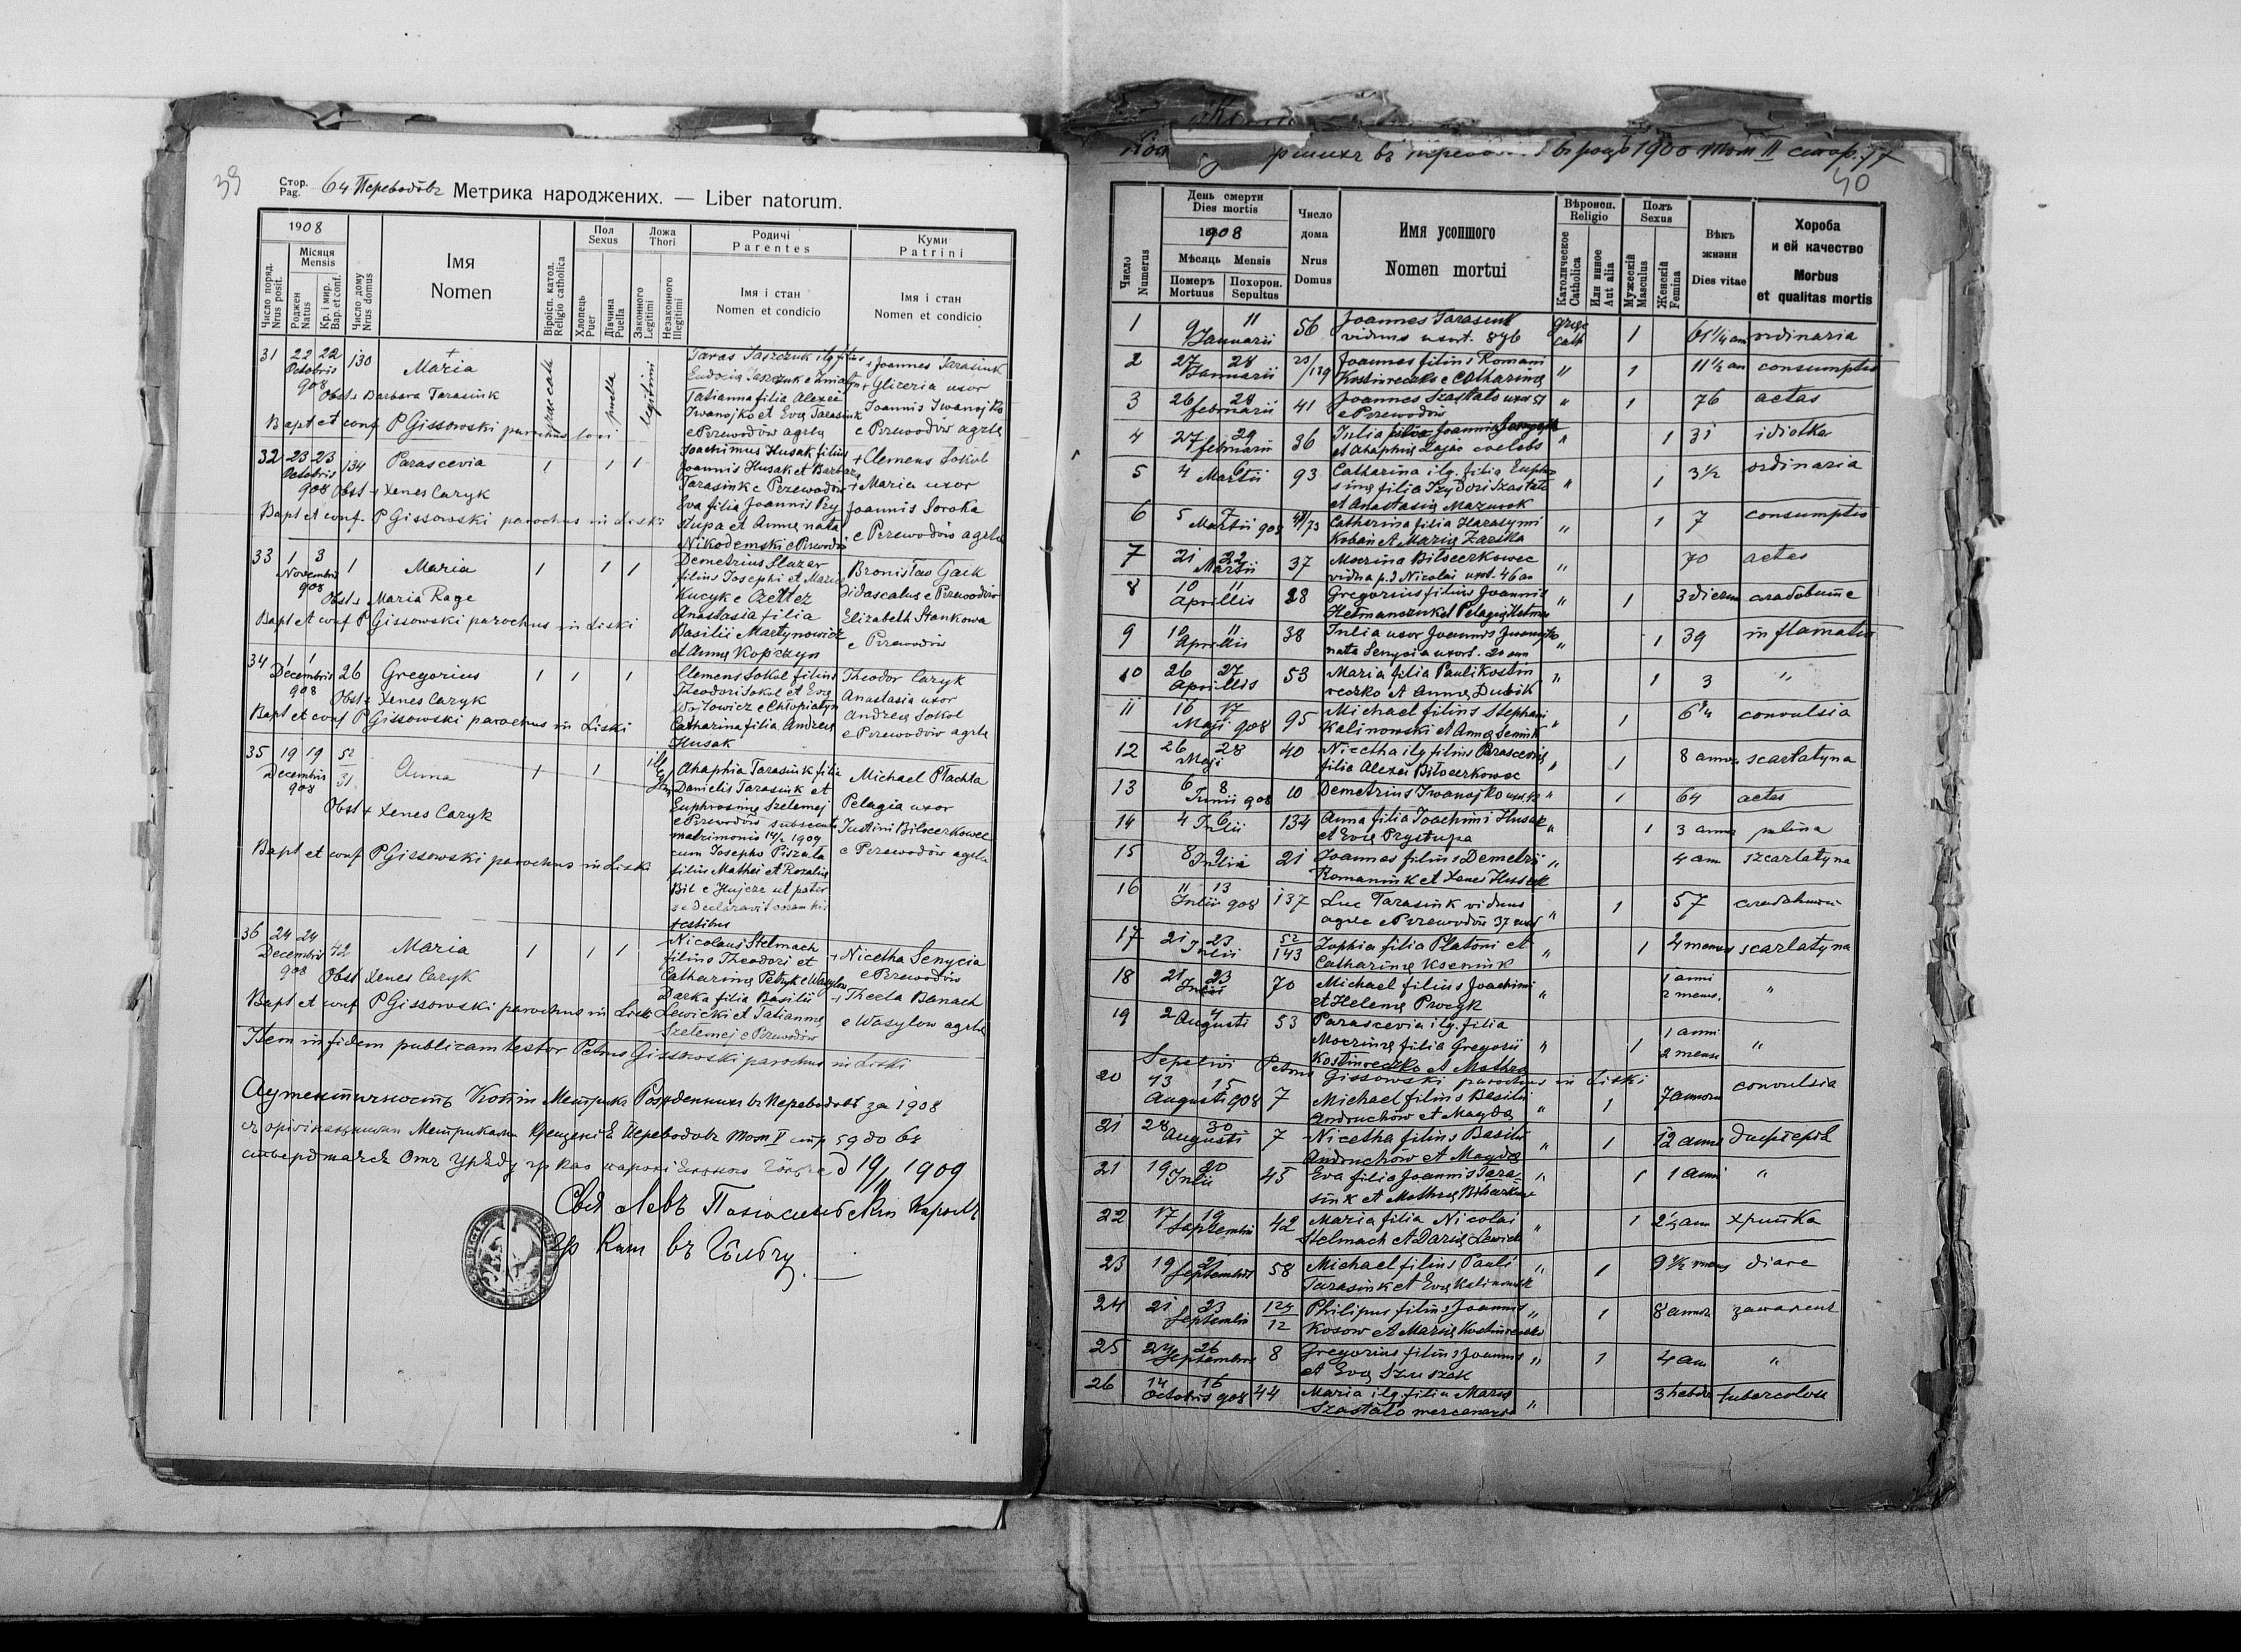 39
Стор. Pag. 64 Переводôвъ Метрика народжених. — Liber natorum.
1908
Число поряд. Nrus posit.
Місяця Mensis
Роджен Natus
Кр. і мир. Bap. et conf.
Число дому Nrus domus
Імя Nomen
Віроісп. катол. Religio catholica
Пол Sexus
Хлопець Puer
Дівчина Puella
Ложа Thori
Законного Legitimi
Незаконного Illegitimi
Родичі Parentes
Імя і стан Nomen et condicio
Куми Patrini
Імя і стан Nomen et condicio
31 22 22 Octobris 908 130 Maria graec cath puella legitimi
Obst + Barbara Tarasiuk
Bapt et conf P Gissowski parochus loci
Taras Jaszczuk ilg filius
Tatianna filia Alexei
Iwanojko et Evę Tarasiuk
e Przewodów agrlę
+ Joannes Tarasiuk
+ Gliceria uxor
Joannis Iwanojko
e Przewodów agrlę
32 23 23 Octobris 908 134 Parascevia 1 1 1
Obst + Xenes Caryk
Bapt et conf. P Gissowski parochus in Liski
Joachimus Husak filius
Joannis Husak et Barbarę
Tarasiuk e Przewodów
Eva filia Joannis Przy
stupa et Annę nata
Nikodemski e Przewodów
+ Clemens Sokol
+ Maria uxor
Joannis Soroka
e Przewodów agrlę
33 1 3 Novembris 908 1 Maria 1 1 1
Obst + Maria Rage
Bapt et conf P Gissowski parochus in Liski
Demetrius Slazar
filius Josephi et Marię
Kucyk e
Anastasia filia
Basilii Martynowicz
et Annę Kopczyn
Bronisław Gack
Didascalus e Przewodów
Elizabeth Stankowa
e Przewodów
34 1 1 Decembris 908 26 Gregorius 1 1 1
Obst + Xenes Caryk
Bapt et conf P Gissowski parochus in Liski
Clemens Sokol filius
Theodori Sokol et Evę
Wojtowicz e Chłopiatyn
Catharina filia Andreę
Husak
Theodor Caryk
Anastasia uxor
Andreę Sokol
e Przewodów agrlę
35 19 19 Decembris 908 52/31 Anna 1 1
Obst + Xenes Caryk
Bapt et conf P Gissowski parochus in Liski
Ahaphia Tarasiuk filia
Danielis Tarasiuk et
Euphrosinę Szelemej
e Przewodów subsecuto
matrimonio 14/2 1909
cum Josepho Piszala
filius Mathei et Rozalię
Bil e Hujcze ut pater
se declaravit coram his
testibus
Michael Płachta
Pelagia uxor
Justini Biłocerkowec
e Przewodów agrlę
36 24 24 Decembris 908 42 Maria 1 1 1
Obst Xenes Caryk
Bapt et conf P Gissowski parochus in Liski
Nicolaus Stelmach
filius Theodori et
Catharinę Petryk e Wasylow
Darka filia Basilii
Lewicki et Tatiannę
Szelemej e Przewodów
+ Nicetha Senycia
e Przewodów
+ Thecla Banach
e Wasylow agrlę
Item in fidem publicam testor Petrus Gissowski parochus in Liski
Аутентичность Копіи Метрики Рожденныхъ въ Переводовѣ за 1908
съ оригінальными Метриками Крещеній Переводовъ Томъ V стр 59 до 64
д 19/II 1909
1908
Число Numerus
День смерти Dies mortis
Мѣсяць Mensis
Померъ Mortuus
Похорон. Sepultus
Число дома Nrus Domus
Имя усопшого Nomen mortui
Вѣроисп. Religio
Католическое Catholica
Или иное Aut alia
Полъ Sexus
Мужескій Masculus
Женскій Femina
Вѣкъ жизни Dies vitae
Хороба и ей качество Morbus et qualitas mortis
40
1 9 11 Januarii 56 Joannes Tarasiuk graec cath 1 61 1/4 an ordinaria
viduus uxort. 896
2 27 28 Januarii 23/139 Joannes filius Romani " 1 11 1/2 an consumptio
Kostiureczko e Catharinę
3 26 28 februarii 41 Joannes Szastało uxor 51 " 1 76 aetas
e Przewodów
4 27 29 februarii 36 Julia filia Joannis " 1 31 idiotka
et Ahaphię Zając coelebs
5 4 6 Martii 93 Catharina ilg. filia Euphro " 1 3 1/2 ordinaria
sinę filia Izydori Szastało
et Anastasię Mazurok
6 5 7 Martii 908 48/73 Catharina filia Harasymi " 1 7 consumptio
Koban et Marię Zariska
7 21 22 Martii 37 Mocrina Biłocerkowec " 70 aetas
vidua p. d Nicolai uxort. 46 an
8 10 11 Aprillis 28 Gregorius filius Joannis " 1 3 dierum
Hetmanczuk et Pelagię Hetman
9 10 11 Aprillis 38 Julia uxor Joannis Iwanojko " 1 39 inflamatio
nata Senycia uxort. 20 ann
10 26 27 Aprillis 53 Maria filia Pauli Kostiu " 1 3 "
reczko et Annę Dubik
11 16 17 Maji 908 95 Michael filius Stephani " 1 6 3/4 convulsia
Kalinowski et Annę Semiuk
12 26 28 Maji 40 Nicetha ilg filius Parascevię " 1 8 annor scarlatyna
filia Alexei Biłocerkowec
13 6 8 Junii 908 10 Demetrius Iwanojko uxor 42 " 1 64 aetas
14 4 6 Julii 134 Anna filia Joachimi Husak " 1 3 annor
et Evę Przystupa
15 8 9 Julii 21 Joannes filius Demetrii " 4 ann szcarlatyna
Romaniuk et Xenes Husak
16 11 13 Julii 908 137 Luc Tarasiuk viduus " 1 57
agrlę e Przewodów 37 uxor
17 21 23 Julii 52/143 Zophia filia Platoni et " 1 4 mensis scarlatyna
Catharinę Kseniuk
18 21 23 Julii 70 Michael filius Joachimi " 1 anni 2 mens. "
et Helenę Procyk
19 2 4 Augusti 53 Parascevia ilg. filia " 1 1 anni 2 mense "
Mocrinę filia Gregorii
Kostiureczko et Mathrę
Sepelivi Petrus Gissowski parochus in Liski
20 13 15 Augusti 908 7 Michael filius Basilii " 1 7 annorum convulsia
Andruchów et Magdę
21 28 30 Augusti 7 Nicetha filius Basilii " 1 12 annor дифтерія
Andruchów et Magdę
21 19 20 Julii 45 Eva filia Joannis Tara- " 1 1 anni "
siuk et Mathrę Biłocerkowec
22 17 19 Septembris 42 Maria filia Nicolai " 1 2 1/2 ann хрипка
Stelmach et Darię Lewicki
23 19 21 Septembris 58 Michael filius Pauli " 1 9 1/2 mens diare
Tarasiuk et Evę Kalinowsk
24 21 23 Septembris 124/12 Philipus filius Joannis " 1 8 annor
Kosow et Marię Kostiureczko
25 24 26 Septembris 8 Gregorius filius Joannis " 1 4 ann "
et Evę Szuszak
26 14 16 Octobris 908 44 Maria ilg. filia Marię " 3 hebdo tubercolosa
Szastało mercenaria